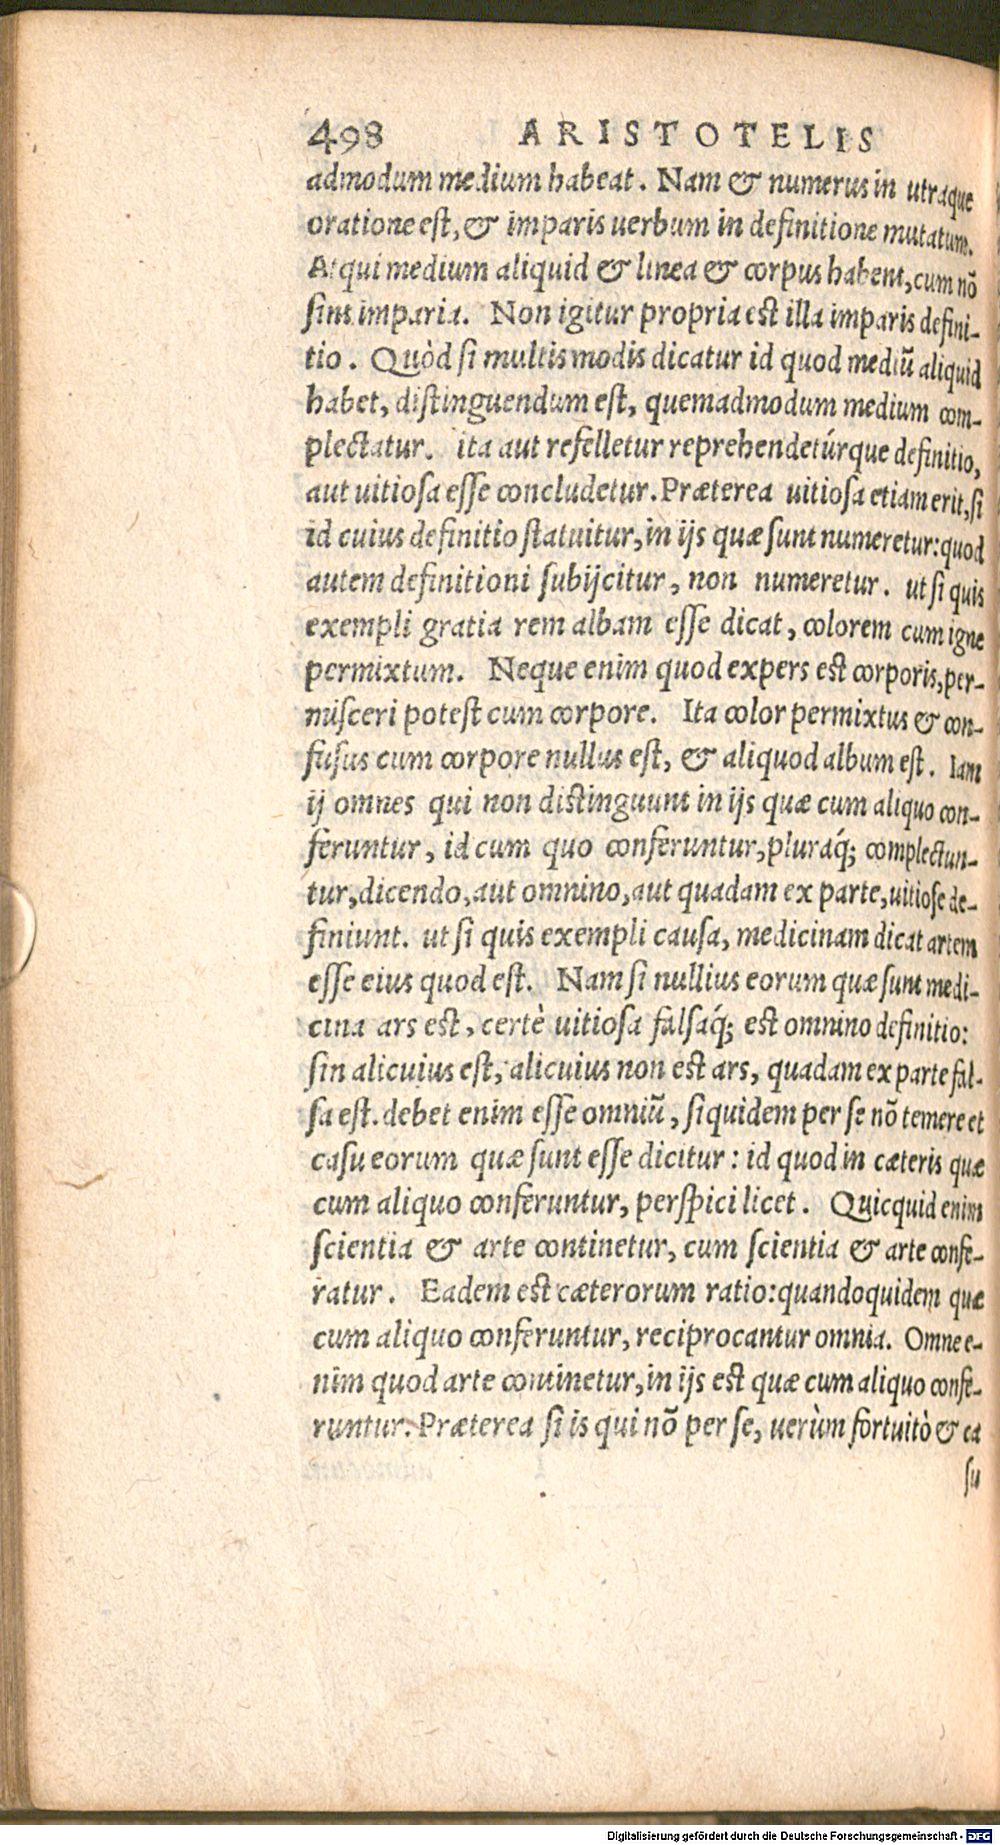 498 ARISTOTELIS
admodum medium habeat. Nam & numerus in utraque
oratione est, & imparis uerbum in definitione mutatum.
Atqui medium aliquid & linea & corpus habent, cum nõ
sint imparia. Non igitur propria est illa imparis defini-
tio. Quòd si multis modis dicatur id quod mediũ aliquid
habet, distinguendum est, quemadmodum medium com-
plectatur. ita aut refelletur reprehendetúrque definitio,
aut uitiosa esse concludetur. Præterea uitiosa etiam erit, si
id cuius definitio statuitur, in ijs quæ sunt numeretur: quod
autem definitioni subijcitur, non numeretur. ut si quis
exempli gratia rem albam esse dicat, colorem cum igne
permixtum. Neque enim quod expers est corporis, per-
misceri potest cum corpore. Ita color permixtus & con-
fusus cum corpore nullus est, & aliquod album est. Iam
ij omnes qui non distinguunt in ijs quæ cum aliquo con-
feruntur, id cum quo conferuntur, pluráq; complectun-
tur, dicendo, aut omnino, aut quadam ex parte, uitiose de-
finiunt. ut si quis exempli causa, medicinam dicat artem
esse eius quod est. Nam si nullius eorum quæ sunt medi-
cina ars est, certè uitiosa falsáq; est omnino definitio:
sin alicuius est, alicuius non est ars, quadam ex parte fal-
sa est. debet enim esse omniũ, siquidem per se nõ temere et
casu eorum quæ sunt esse dicitur: id quod in cæteris quæ
cum aliquo conferuntur, perspici licet. Quicquid enim
scientia & arte continetur, cum scientia & arte confe-
ratur. Eadem est cæterorum ratio: quandoquidem quæ
cum aliquo conferuntur, reciprocantur omnia. Omne e-
nim quod arte continetur, in ijs est quæ cum aliquo confe-
runtur. Præterea si is qui nõ per se, uerùm fortuitò & ca
su
Digitalisierung gefördert durch die Deutsche Forschungsgemeinschaft - DFG